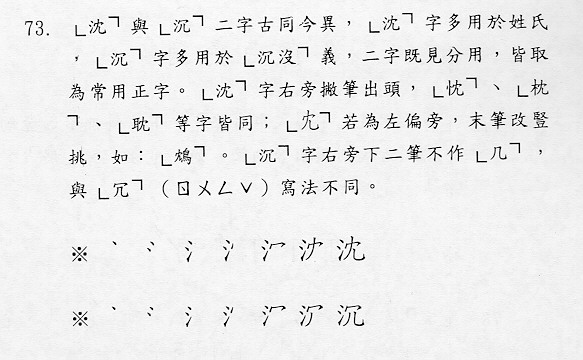 73. ﹂沈﹁ 與﹂沉﹁ 二字古同今異，﹂沈﹁ 字多用於姓氏
，﹂沉﹁ 字多用於﹂沉沒﹁ 義，二字既見分用，皆取
為常用正字。﹂沈﹁ 字右旁撇筆出頭，﹂忱﹁、﹂枕
﹁、﹂耽﹁ 等字皆同；﹂冘﹁ 若為左偏旁，末筆改豎
挑，如：﹂鴆﹁。﹂沉﹁ 字右旁下二筆不作﹂几﹁，
與﹂冗﹁（ㄖㄨㄥˇ）寫法不同。
※ 沈
※ 沉